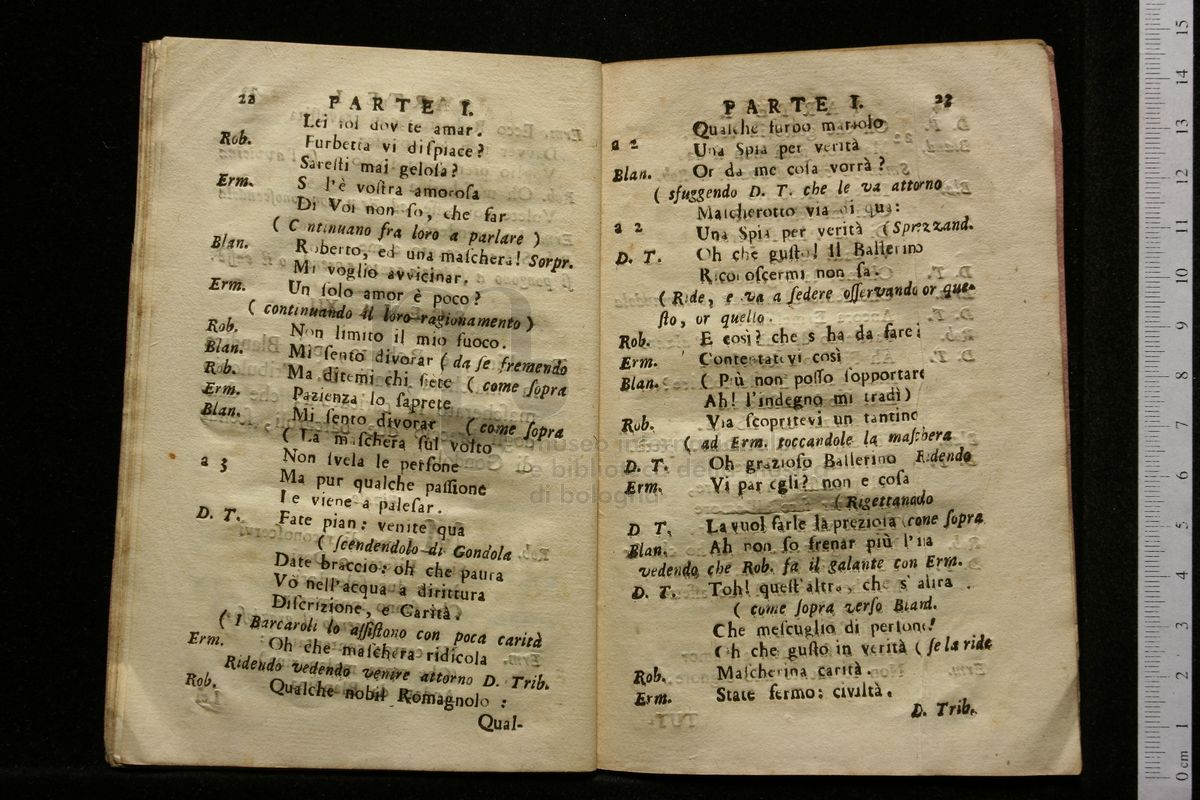 22 PARTE I.
Lei sol dov te amar.
Rob. Furbetta vi dispiace?
Saresti mai gelosa?
Erm. S l'è vostra amorosa
Di Voi non so, che far
( C ntinuano fra loro a parlare )
Blan. Roberto, ed una maschera! Sorpr.
Mi voglio avvicinar.
Erm. Un solo amor è poco?
( continuando il loro ragionamento )
Rob. Non limito il mio fuoco.
Blan. Mi sento divorar ( da se fremendo
Rob. Ma ditemi chi siete ( come sopra
Erm. Pazienza lo saprete
Blan. Mi sento divorar ( come sopra
( La maschera sul volto
a 3 Non svela le persone
Ma pur qualche passione
Le viene a palesar.
D. T. Fate pian: venite qua
( scendendolo di Gondola
Date braccio: oh che paura
Vò nell'acqua a dirittura
Discrizione, e Carità.
( I Barcaroli lo assistono con poca carità
Erm. Oh che maschera ridicola
Ridendo vedendo venire attorno D. Trib.
Rob. Qualche nobil Romagnolo:
Qual-
PARTE I. 23
Qualche furbo mariolo
a 2 Una Spia per verità
Blan. Or da me cosa vorrà?
( sfuggendo D. T. che le va attorno
Mascherotto via di qua:
a 2 Una Spia per verità (Sprezzand.
D. T. Oh che gusto! Il Ballerino
Ricoroscermi non sa.
( Ride, e va a sedere osservando or que-
sto, or quello.
Rob. E così? che s ha da fare?
Erm. Contentatevi così
Blan. ( Più non posso sopportare
Ah! l'indegno mi tradì)
Rob. Via scopritevi un tantino
( ad Erm. toccandole la maschera
D. T. Oh grazioso Ballerino Ridendo
Erm. Vi par egli? non e cosa
(Rigettanado
D T, La vuol farle la preziosa come sopra
Blan. Ah non so frenar più l'ira
vedendo che Rob. fa il galante con Erm.
D. T. Toh! quest'altra, che s'adira
( come sopra verso Bland.
Che mescuglio di persone!
Oh che gusto in verità ( se la ride
Rob. Mascherina carità.
Erm. State fermo: civiltà.
D. Trib.
museo
biblioteca
di bologna
0 cm 1 2 3 4 5 6 7 8 9 10 11 12 13 14 15